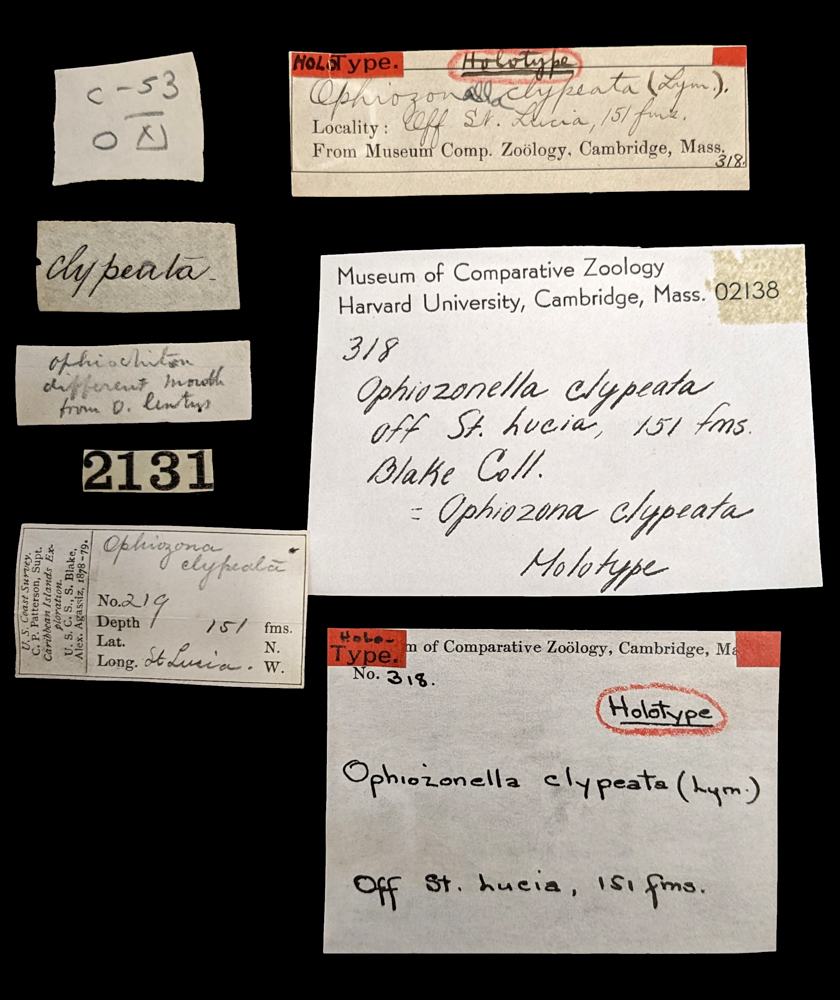 C-53
O X
HOLOType.
Holotype
Ophiozonella clypeata (Lym.).
Locality: Off St. Lucia, 151 fms.
From Museum Comp. Zoölogy, Cambridge, Mass.
318.
clypeata.
ophiochiton
different mouth
from O. lentus
2131
U. S. Coast Survey.
C. P. Patterson, Supt.
Caribbean Islands Ex-
ploration.
U. S. C. S., S. Blake,
Alex. Agassiz, 1878-79.
Ophiozona
clypeata
No. 219
Depth 151 fms.
Lat. N.
Long. St Lucia. W.
Museum of Comparative Zoology
Harvard University, Cambridge, Mass. 02138
318
Ophiozonella clypeata
off St. Lucia, 151 fms.
Blake Coll.
= Ophiozona clypeata
Holotype
Holo-
Type.
m of Comparative Zoölogy, Cambridge, Ma
No. 318.
Holotype
Ophiozonella clypeata (Lym.)
Off St. Lucia, 151 fms.